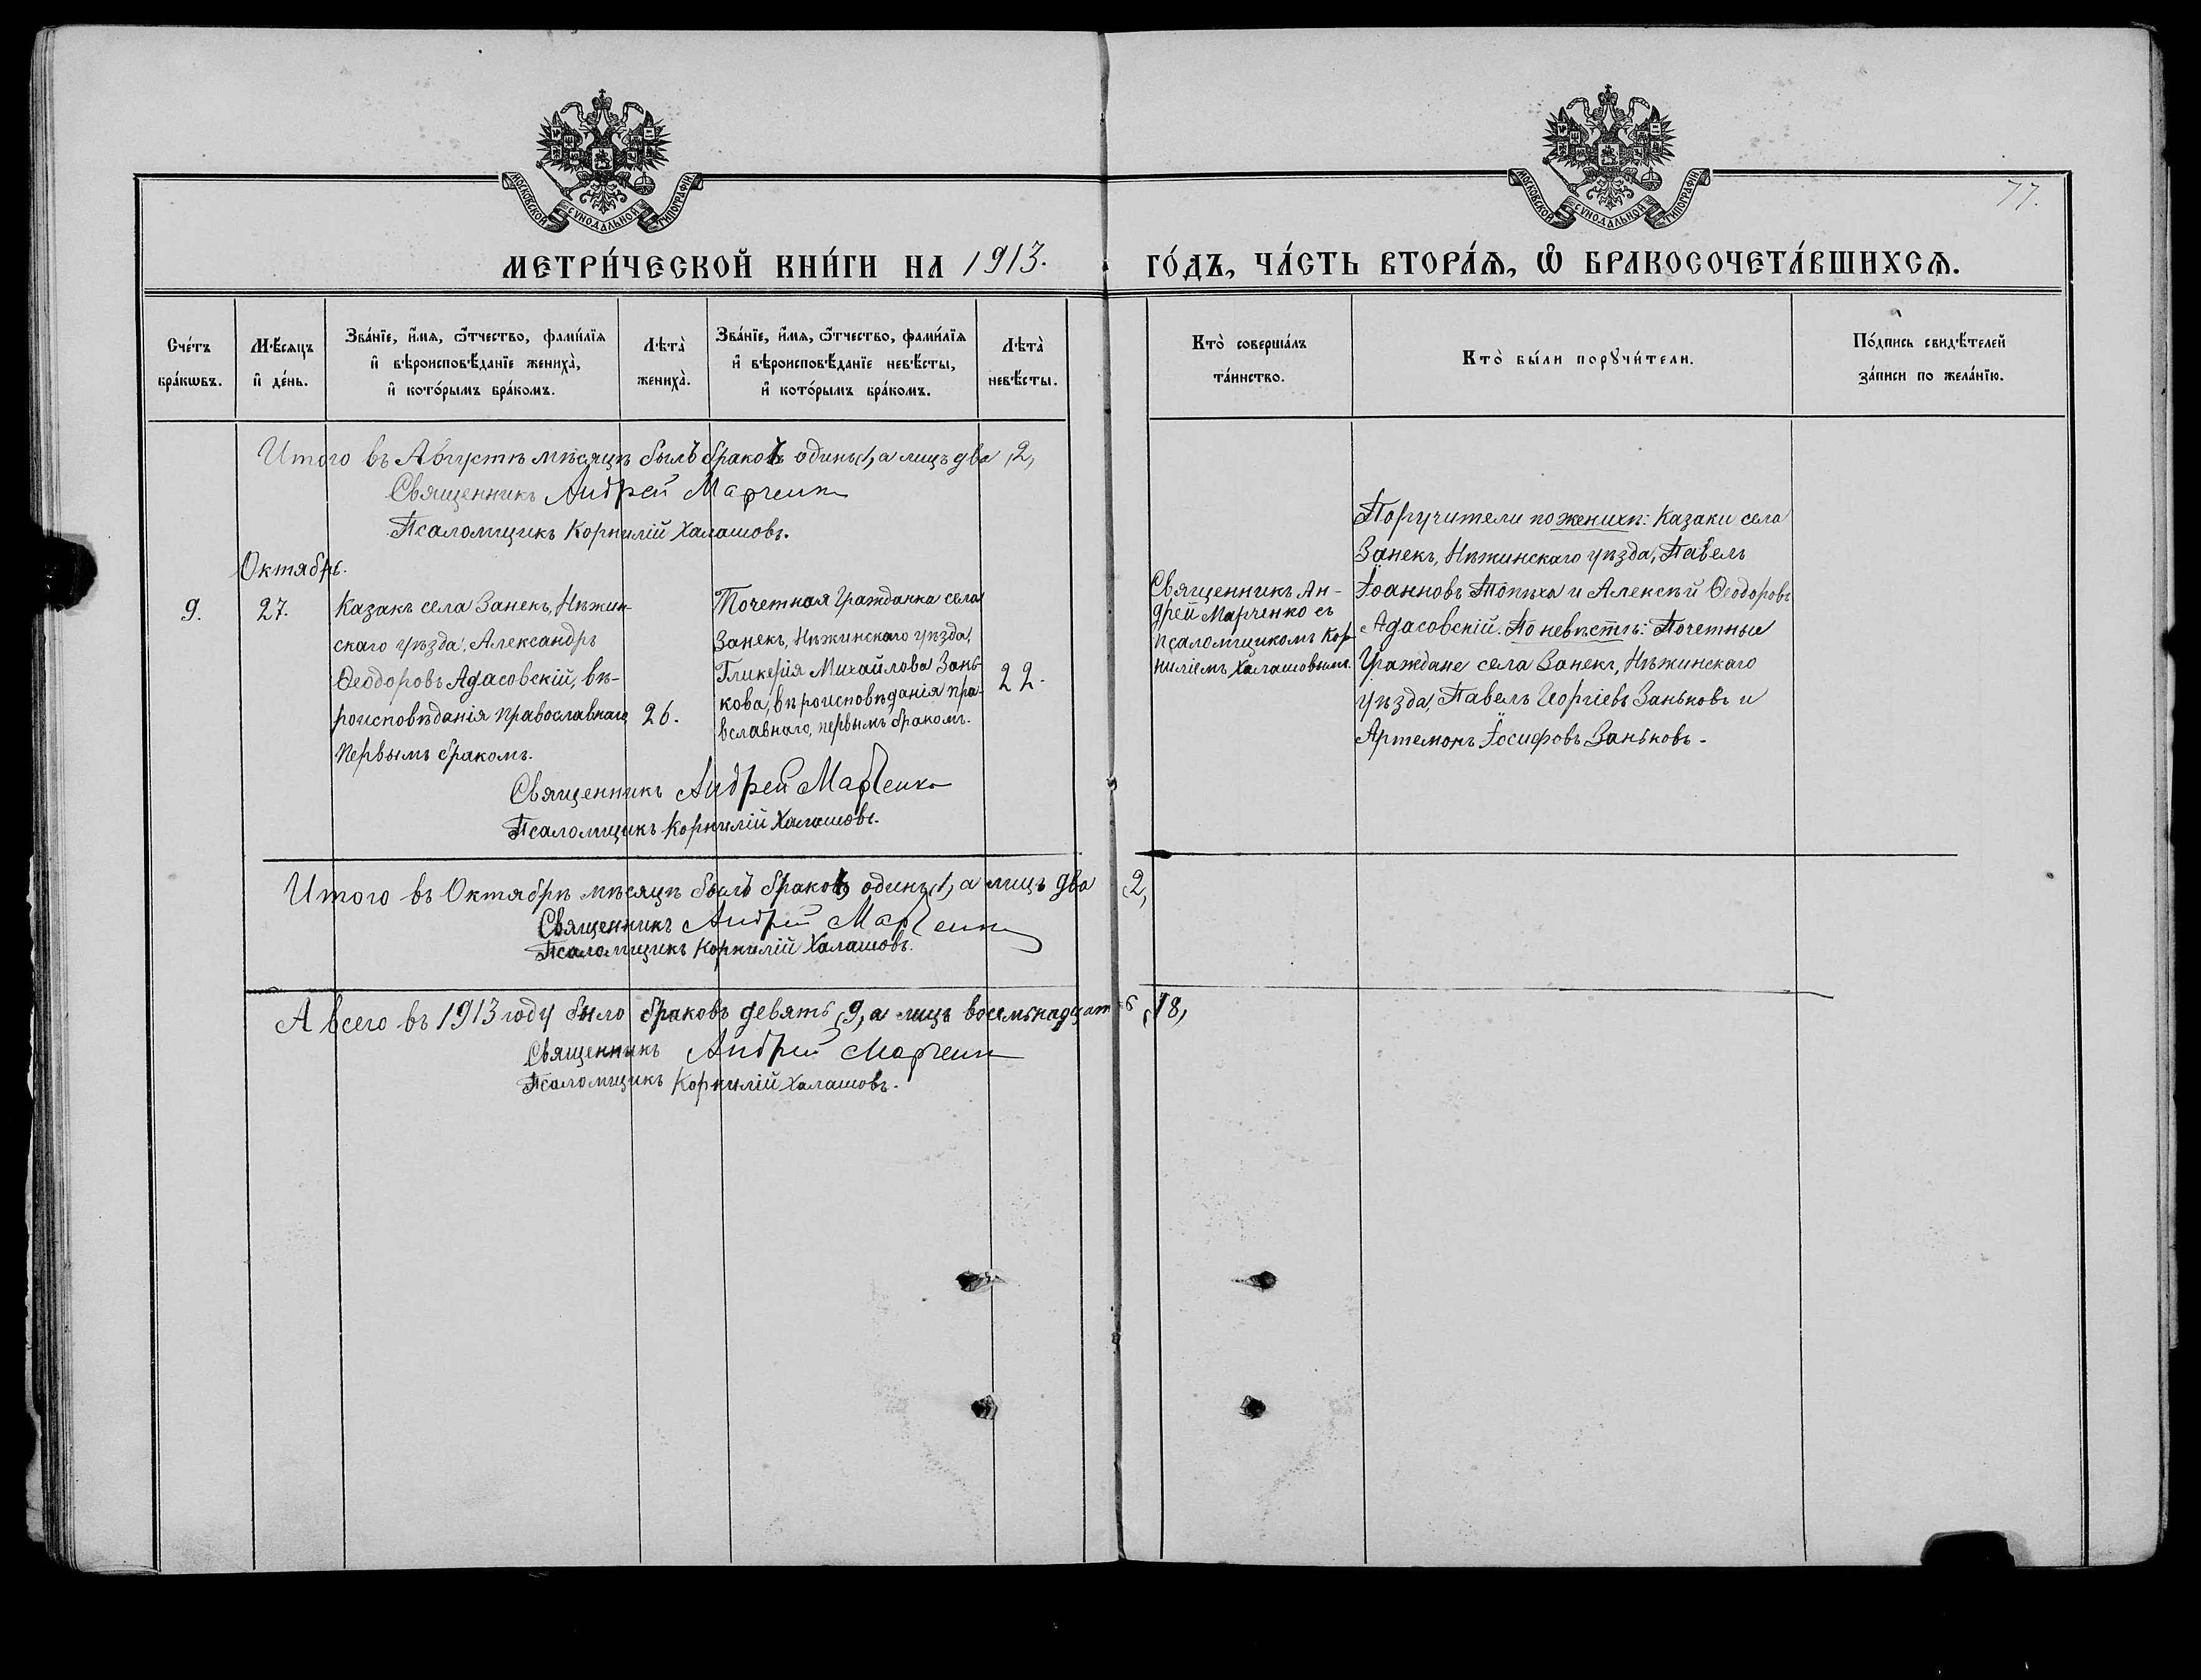 МОСКОВСКОЙ СУНОДАЛЬНОЙ ТИПОГРАФІИ
МОСКОВСКОЙ СУНОДАЛЬНОЙ ТИПОГРАФІИ
77.
МЕТРИ́ЧЕСКОЙ КНИ́ГИ НА 1913. ГО́ДЪ, ЧА́СТЬ ВТОРА́Ѧ, Ѽ БРАКОСОЧЕТА́ВШИХСѦ.
Сче́тъ
бра́кѡвъ.
Мѣ́сяцъ
и҆ де́нь.
Зва́нїе, и҆́мѧ, ѻ҆́тчество, фами́лїѧ
и҆ вѣроисповѣ́данїе жениха̀,
и҆ кото́рымъ бра́комъ.
Лѣта̀
жениха̀.
Зва́нїе, и҆́мѧ, ѻ҆́тчество, фами́лїѧ
и҆ вѣроисповѣ́данїе невѣ́сты,
и҆ кото́рымъ бра́комъ.
Лѣта̀
невѣ́сты.
Кто̀ соверша́лъ
та́инство.
Кто̀ бы́ли порꙋчи́тели.
По́дпись свидѣ́телей
за́писи по жела́нїю.
Итого въ Августѣ мѣсяцѣ былъ бракъ одинъ (1, а лицъ два (2,
Священникъ Андрей Марченко
Псаломщикъ Корнилій Халашовъ.
Октябрь.
9.
27.
Казакъ села Занекъ, Нѣжин-
скаго уѣзда, Александръ
Ѳеодоровъ Адасовскій, вѣ-
роисповѣданія православнаго
первымъ бракомъ.
26.
Почетная Гражданка села
Занекъ, Нѣжинскаго уѣзда,
Гликерія Михайлова Зань-
кова, вѣроисповѣданія пра-
вславнаго, первымъ бракомъ.
22.
Священникъ Ан-
дрей Марченко съ
псаломщикомъ Кор-
ниліемъ Халашовымъ.
Поручители по женихѣ: Казаки села
Занекъ, Нѣжинскаго уѣзда, Павелъ
Іоанновъ Топиха и Алексѣй Ѳеодоровъ
Адасовскій. По невѣстѣ: Почетные
Граждане села Занекъ, Нѣжинскаго
уѣзда, Павелъ Георгіевъ Заньковъ и
Артемонъ Іосифовъ Заньковъ.
Священникъ Андрей Марченко
Псаломщикъ Корнилій Халашовъ.
Итого въ Октябрѣ мѣсяцѣ былъ бракъ одинъ (1, а лицъ два (2,
Священникъ Андрей Марченко
Псаломщикъ Корнилій Халашовъ.
А всего въ 1913 году было браковъ девять (9, а лицъ восемьнадцать (18,
Священникъ Андрей Марченко
Псаломщикъ Корнилій Халашовъ.